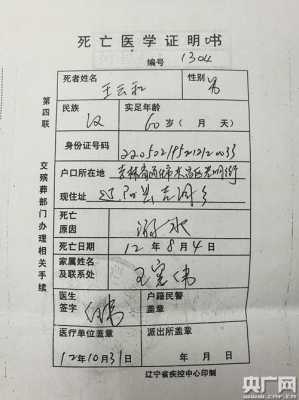 死亡医学证明书
编号 1304
死者姓名 王云和 性别 男
民族 汉 实足年龄 60岁(月 天)
身份证号码
户口所在地 吉林省通化市
现住址 乡
死亡原因 溺水
死亡日期 12年8月4日
家属姓名及联系处 王宪伟
医生签字 户籍民警盖章
医疗单位盖章 派出所盖章
12年10月31日 年 月 日
辽宁省疾控中心印制
第四联 交殡葬部门办理相关手续
央广网
www.cnr.cn